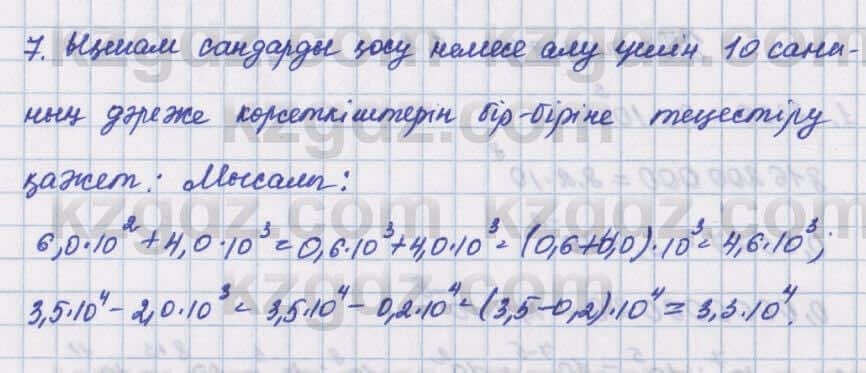 7. Ықшам сандарды қосу немесе алу үшін 10 саны-
ның дәреже көрсеткіштерін бір-біріне теңестіру
қажет. Мысалы:
6,0·10² + 4,0·10³ = 0,6·10³ + 4,0·10³ = (0,6+4,0)·10³ = 4,6·10³;
3,5·10⁴ - 2,0·10³ = 3,5·10⁴ - 0,2·10⁴ = (3,5-0,2)·10⁴ = 3,3·10⁴.
kzgdz.com